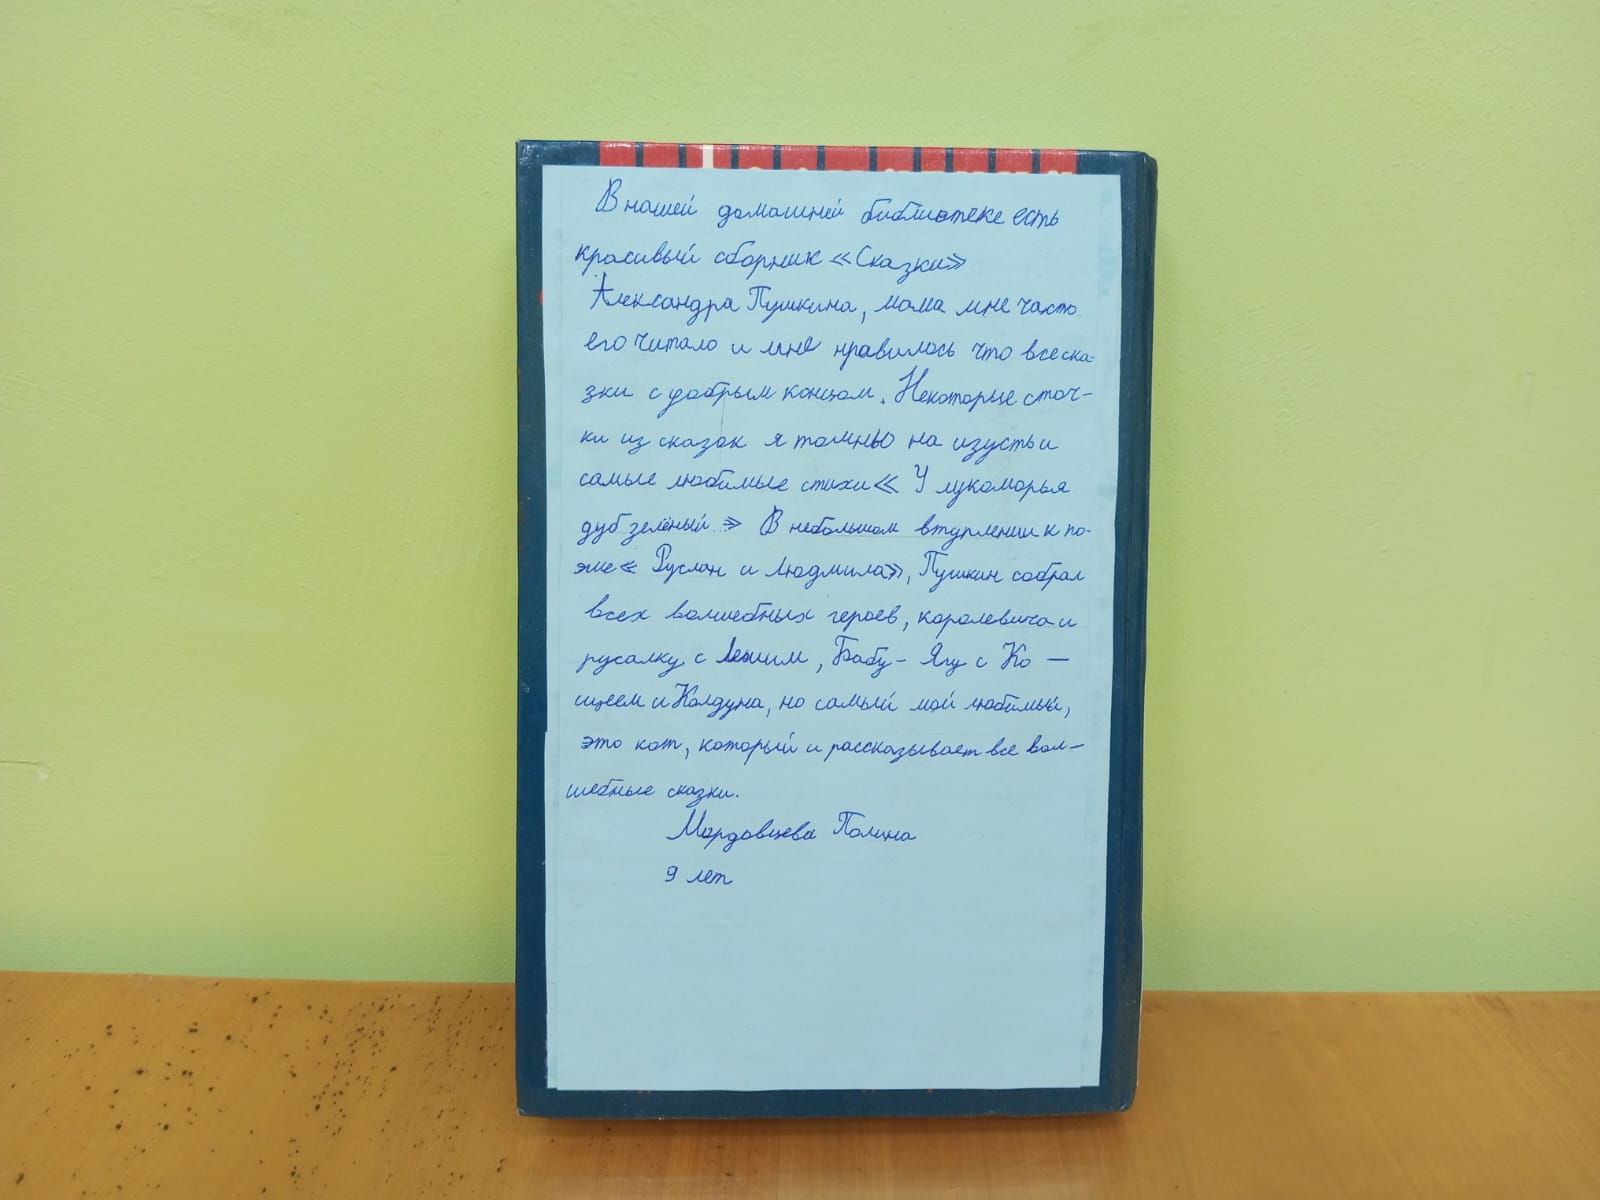 В нашей домашней библиотеке есть
красивый сборник «Сказки»
Александра Пушкина, мама мне часто
его читало и мне нравилось что все ска-
зки с добрым концом. Некоторые строч-
ки из сказок я помню на изусть и
самые любимые стихи « У лукоморья
дуб зелёный..» В небольшом втуплении к по-
эме « Руслан и Людмила», Пушкин собрал
всех волшебных героев, королевича и
русалку с Лешим, Бабу- Ягу с Ко —
щеем и Колдуна, но самый мой любимый,
это кот, который и рассказывает все вол-
шебные сказки.
Мордовцева Полина
9 лет